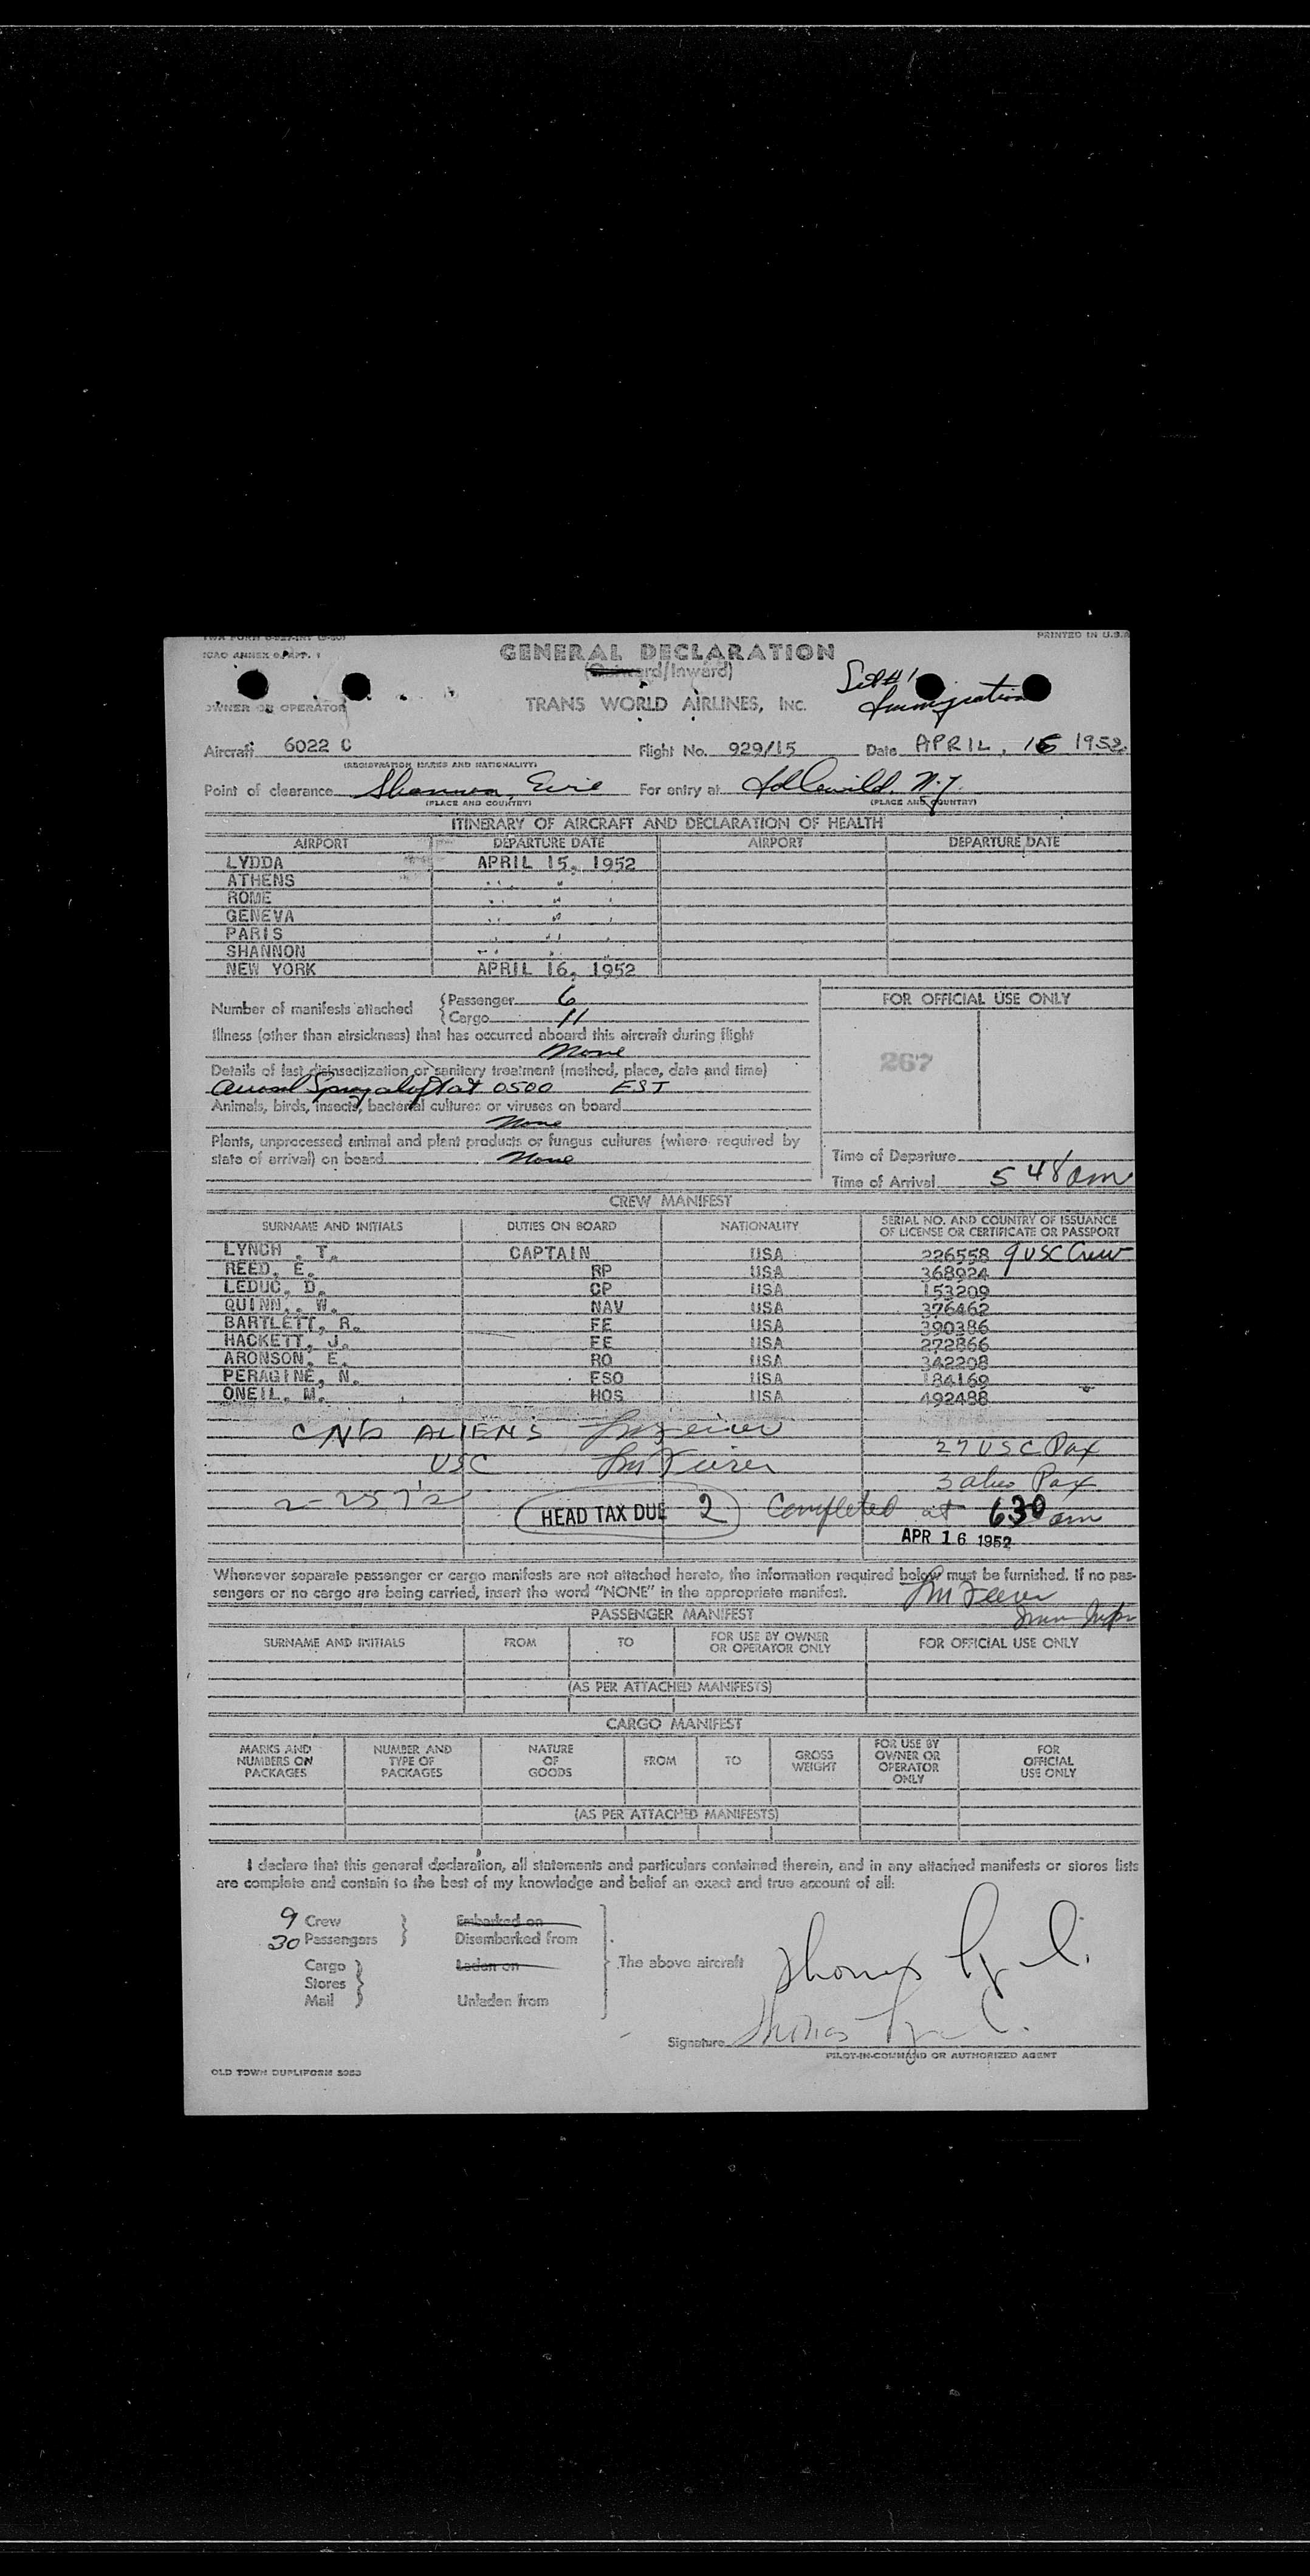 TWA FORM
ICAO ANNEX 9 APP. 1
PRINTED IN U.S.A.
GENERAL DECLARATION
(Outward/Inward)
Set #1
Immigration
OWNER OR OPERATOR
TRANS WORLD AIRLINES, INC.
Aircraft 6022 C Flight No. 929/15 Date APRIL, 16 1952
(REGISTRATION MARKS AND NATIONALITY)
Point of clearance Shannon, Eire For entry at Idlewild, N.Y.
(PLACE AND COUNTRY) (PLACE AND COUNTRY)
ITINERARY OF AIRCRAFT AND DECLARATION OF HEALTH
AIRPORT DEPARTURE DATE AIRPORT DEPARTURE DATE
LYDDA APRIL 15, 1952
ATHENS " "
ROME " "
GENEVA " "
PARIS " "
SHANNON " "
NEW YORK APRIL 16, 1952
Number of manifests attached {Passenger 6
{Cargo 11
FOR OFFICIAL USE ONLY
Illness (other than airsickness) that has occurred aboard this aircraft during flight
None
267
Details of last disinsectization or sanitary treatment (method, place, date and time)
Aerosol Spray aloft at 0500 EST
Animals, birds, insects, bacterial cultures or viruses on board
None
Plants, unprocessed animal and plant products or fungus cultures (where required by
state of arrival) on board None
Time of Departure
Time of Arrival 5 48 am
CREW MANIFEST
SURNAME AND INITIALS DUTIES ON BOARD NATIONALITY SERIAL NO. AND COUNTRY OF ISSUANCE OF LICENSE OR CERTIFICATE OR PASSPORT
LYNCH , T. CAPTAIN USA 226558 9 USC Crew
REED, E. RP USA 368924
LEDUC, D. CP USA 153209
QUINN, W. NAV USA 376462
BARTLETT, R. FE USA 390386
HACKETT, J. FE USA 272866
ARONSON, E. RO USA 342208
PERAGINE, N. ESO USA 184169
ONEIL, M. HOS USA 492488
ALIENS
27 USC Pax
USC
3 alien Pax
HEAD TAX DUE 2 Completed at 630 am
APR 16 1952
Whenever separate passenger or cargo manifests are not attached hereto, the information required below must be furnished. If no pas-
sengers or no cargo are being carried, insert the word "NONE" in the appropriate manifest.
PASSENGER MANIFEST
SURNAME AND INITIALS FROM TO FOR USE BY OWNER OR OPERATOR ONLY FOR OFFICIAL USE ONLY
(AS PER ATTACHED MANIFESTS)
CARGO MANIFEST
MARKS AND NUMBERS ON PACKAGES NUMBER AND TYPE OF PACKAGES NATURE OF GOODS FROM TO GROSS WEIGHT FOR USE BY OWNER OR OPERATOR ONLY FOR OFFICIAL USE ONLY
(AS PER ATTACHED MANIFESTS)
I declare that this general declaration, all statements and particulars contained therein, and in any attached manifests or stores lists
are complete and contain to the best of my knowledge and belief an exact and true account of all:
9 Crew Embarked on
30 Passengers Disembarked from
Cargo Laden on The above aircraft
Stores
Mail Unladen from
Signature Thomas
PILOT-IN-COMMAND OR AUTHORIZED AGENT
OLD TOWN DUPLIFORM